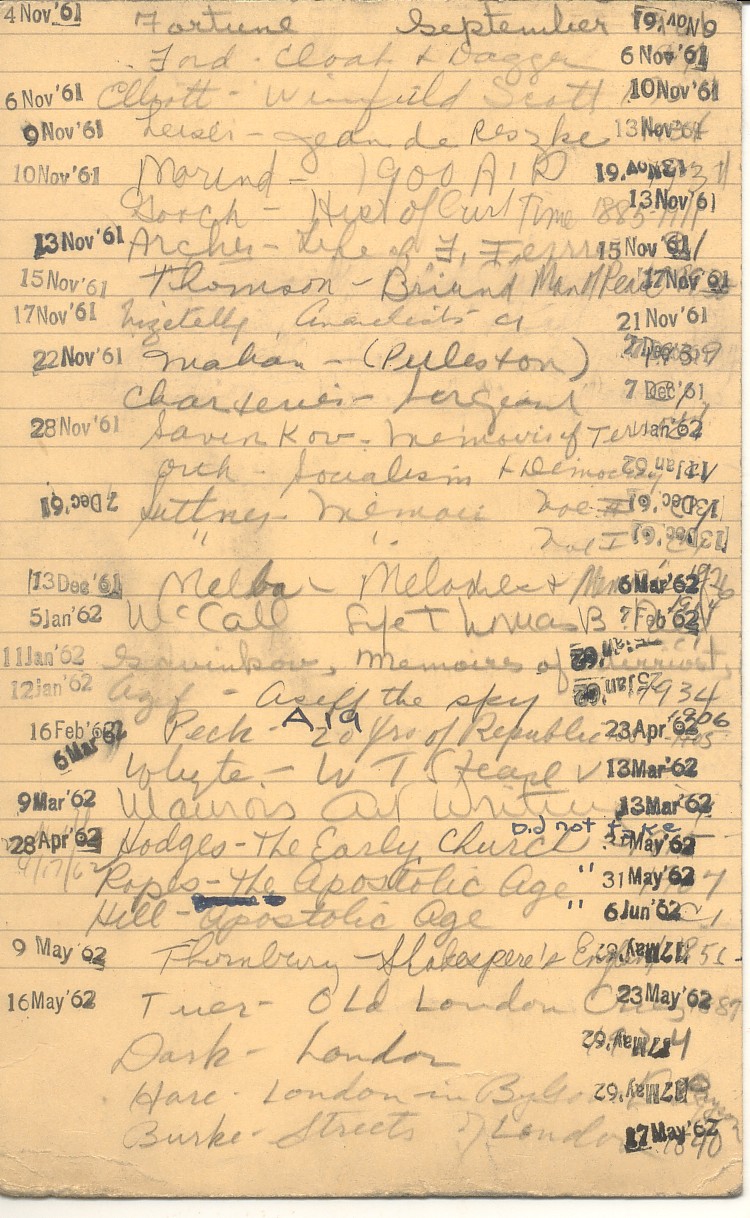 4 Nov'61 Fortune September 9 Nov'61
Ford - Cloak & Dagger 6 Nov'61
6 Nov'61 Elliott - Winfield Scott 10 Nov'61
9 Nov'61 Leiser - Jean de Reszke 13 Nov'61
10 Nov'61 Morand - 1900 A.D 19
Gooch - Hist of Our Time 1885-1911 13 Nov'61
13 Nov'61 Archer - Life of F. Ferrer 15 Nov'61
15 Nov'61 Thomson - Briand Man of Peace 17 Nov'61
17 Nov'61 Vizetelly Anarchists 21 Nov'61
22 Nov'61 Mahan - (Puleston) 7 Dec
Charteris - Sargeant 7 Dec'61
28 Nov'61 Savinkov - Memoirs of Jan'62
Orth - Socialism & Democracy 11 Jan'62
7 Dec'61 Suttner - Memoir Vol II 13 Dec.'61
" " Vol I 13 Dec.'61
13 Dec'61 Melba - Melodies & 6 Mar'62
5 Jan'62 McCall Life Thomas B. 7 Feb'62
11 Jan'62 Savinkov, Memoires of Terrorist,
12 Jan'62 Azef - Aseff the spy 25 Jan'62 1934
16 Feb'62 Peck - 20 Yrs of Republic 1906 23 Apr'62
6 Mar'62 A19
Whyte - W T Stead V 13 Mar'62
9 Mar'62 Maurois Art Writing 13 Mar'62
Did not take
28 Apr'62 Hodges - The Early Church May'62
4/17/62 Ropes - The Apostolic Age " 31 May'62
Hill - Apostolic Age " 6 Jun'62
9 May'62 Thornbury - Shakespere's England 17 May'62
16 May'62 Tuer - Old London Cries 23 May'62
Dark - London 17 May'62
Hare - London in Bygone 17 May'62
Burke - Streets of London 17 May'62